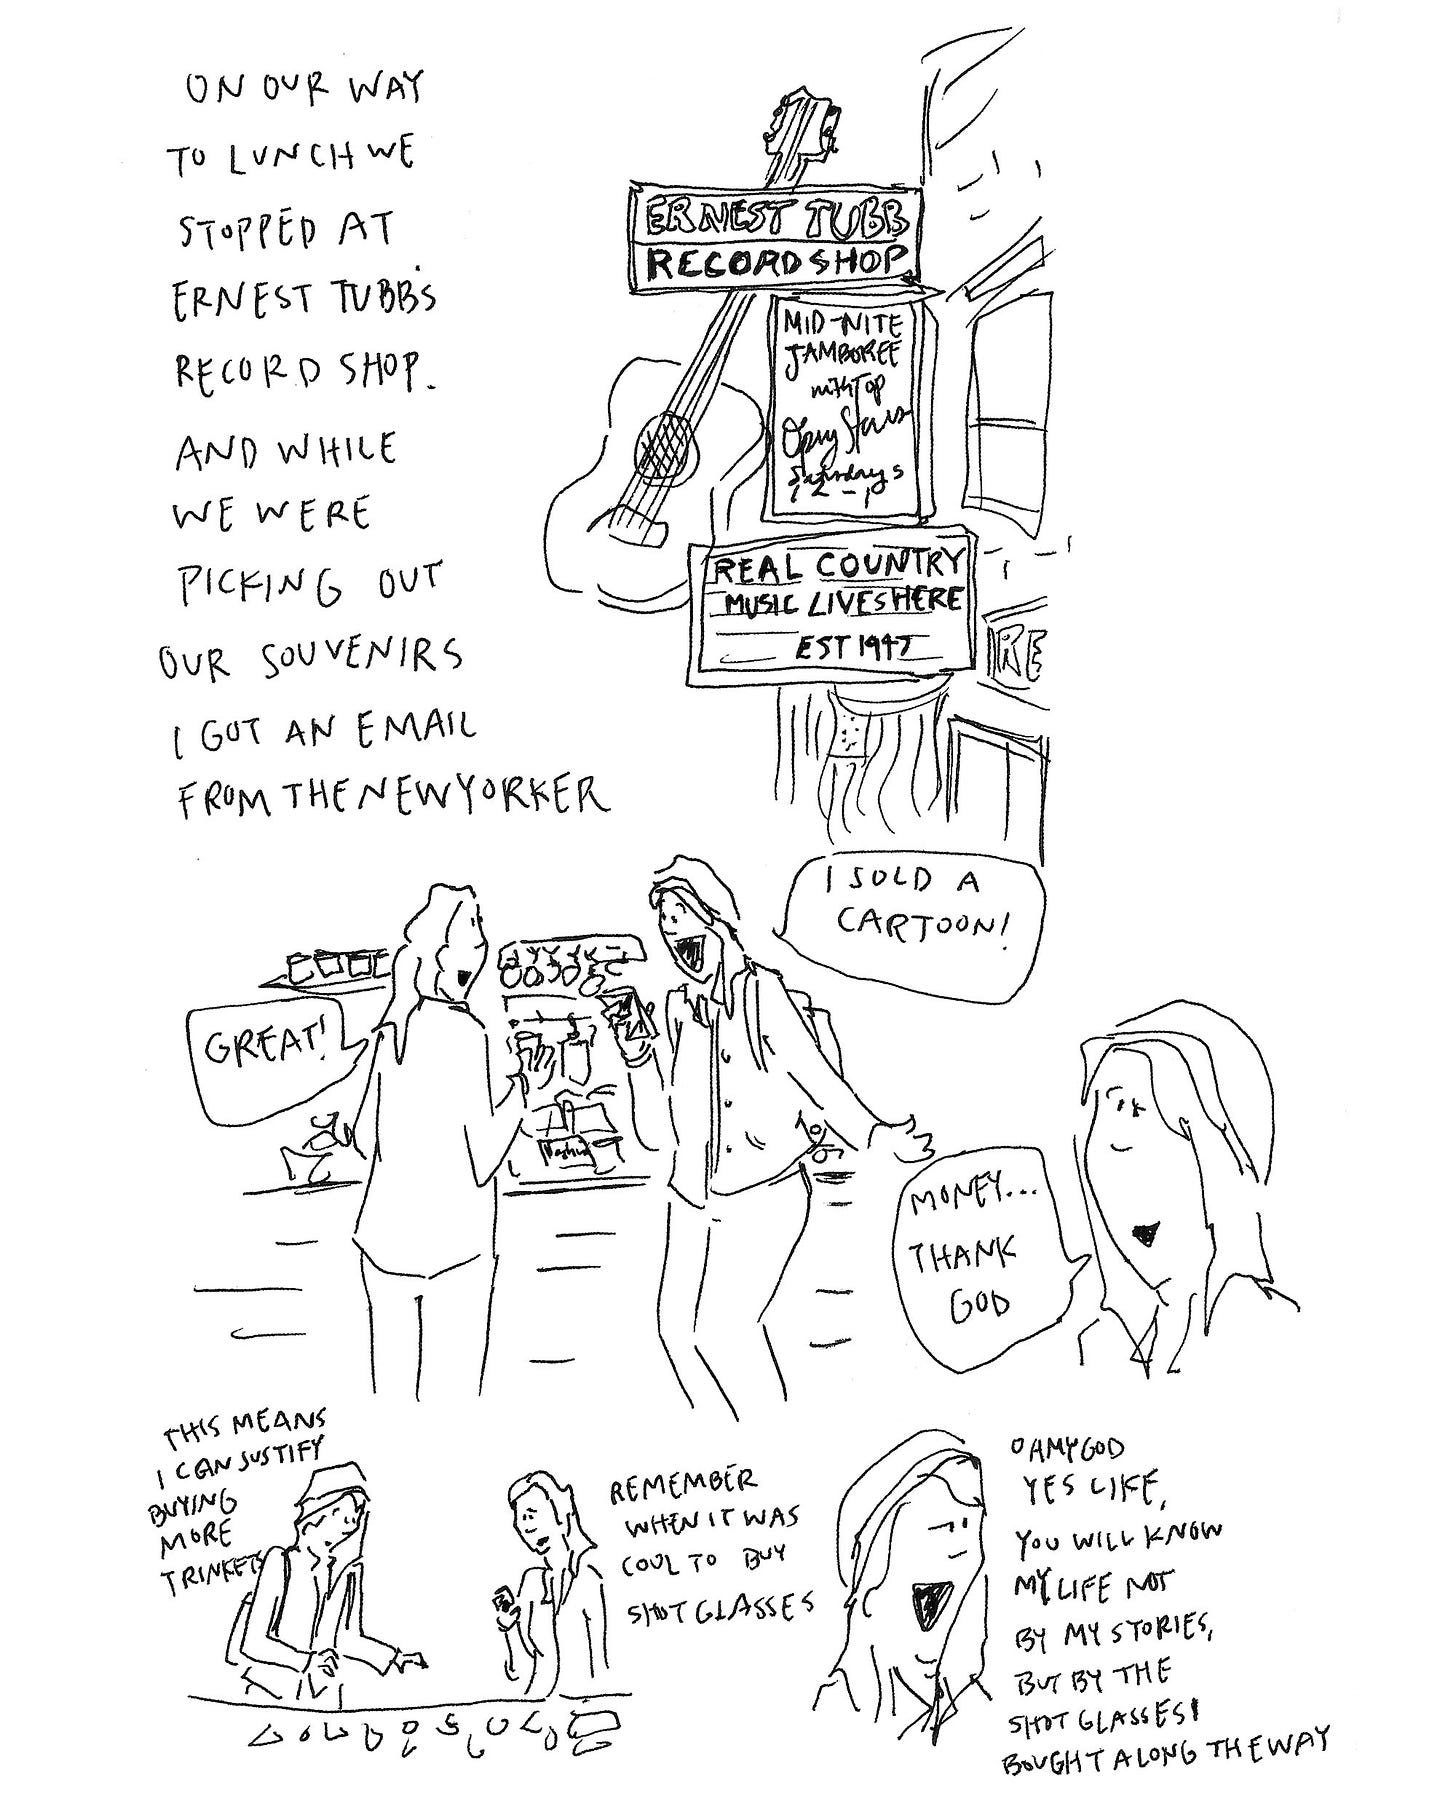 ON OUR WAY
TO LUNCH WE
STOPPED AT
ERNEST TUBB'S
RECORD SHOP.
AND WHILE
WE WERE
PICKING OUT
OUR SOUVENIRS
I GOT AN EMAIL
FROM THE NEW YORKER
ERNEST TUBB
RECORD SHOP
MID-NITE
JAMBOREE
with TOP
Opry Stars
Saturdays
12-1
REAL COUNTRY
MUSIC LIVES HERE
EST 1947
RE
I SOLD A
CARTOON!
GREAT!
MONEY...
THANK
GOD
THIS MEANS
I CAN JUSTIFY
BUYING
MORE
TRINKETS
REMEMBER
WHEN IT WAS
COOL TO BUY
SHOT GLASSES
OH MY GOD
YES LIKE,
YOU WILL KNOW
MY LIFE NOT
BY MY STORIES,
BUT BY THE
SHOT GLASSES I
BOUGHT ALONG THE WAY